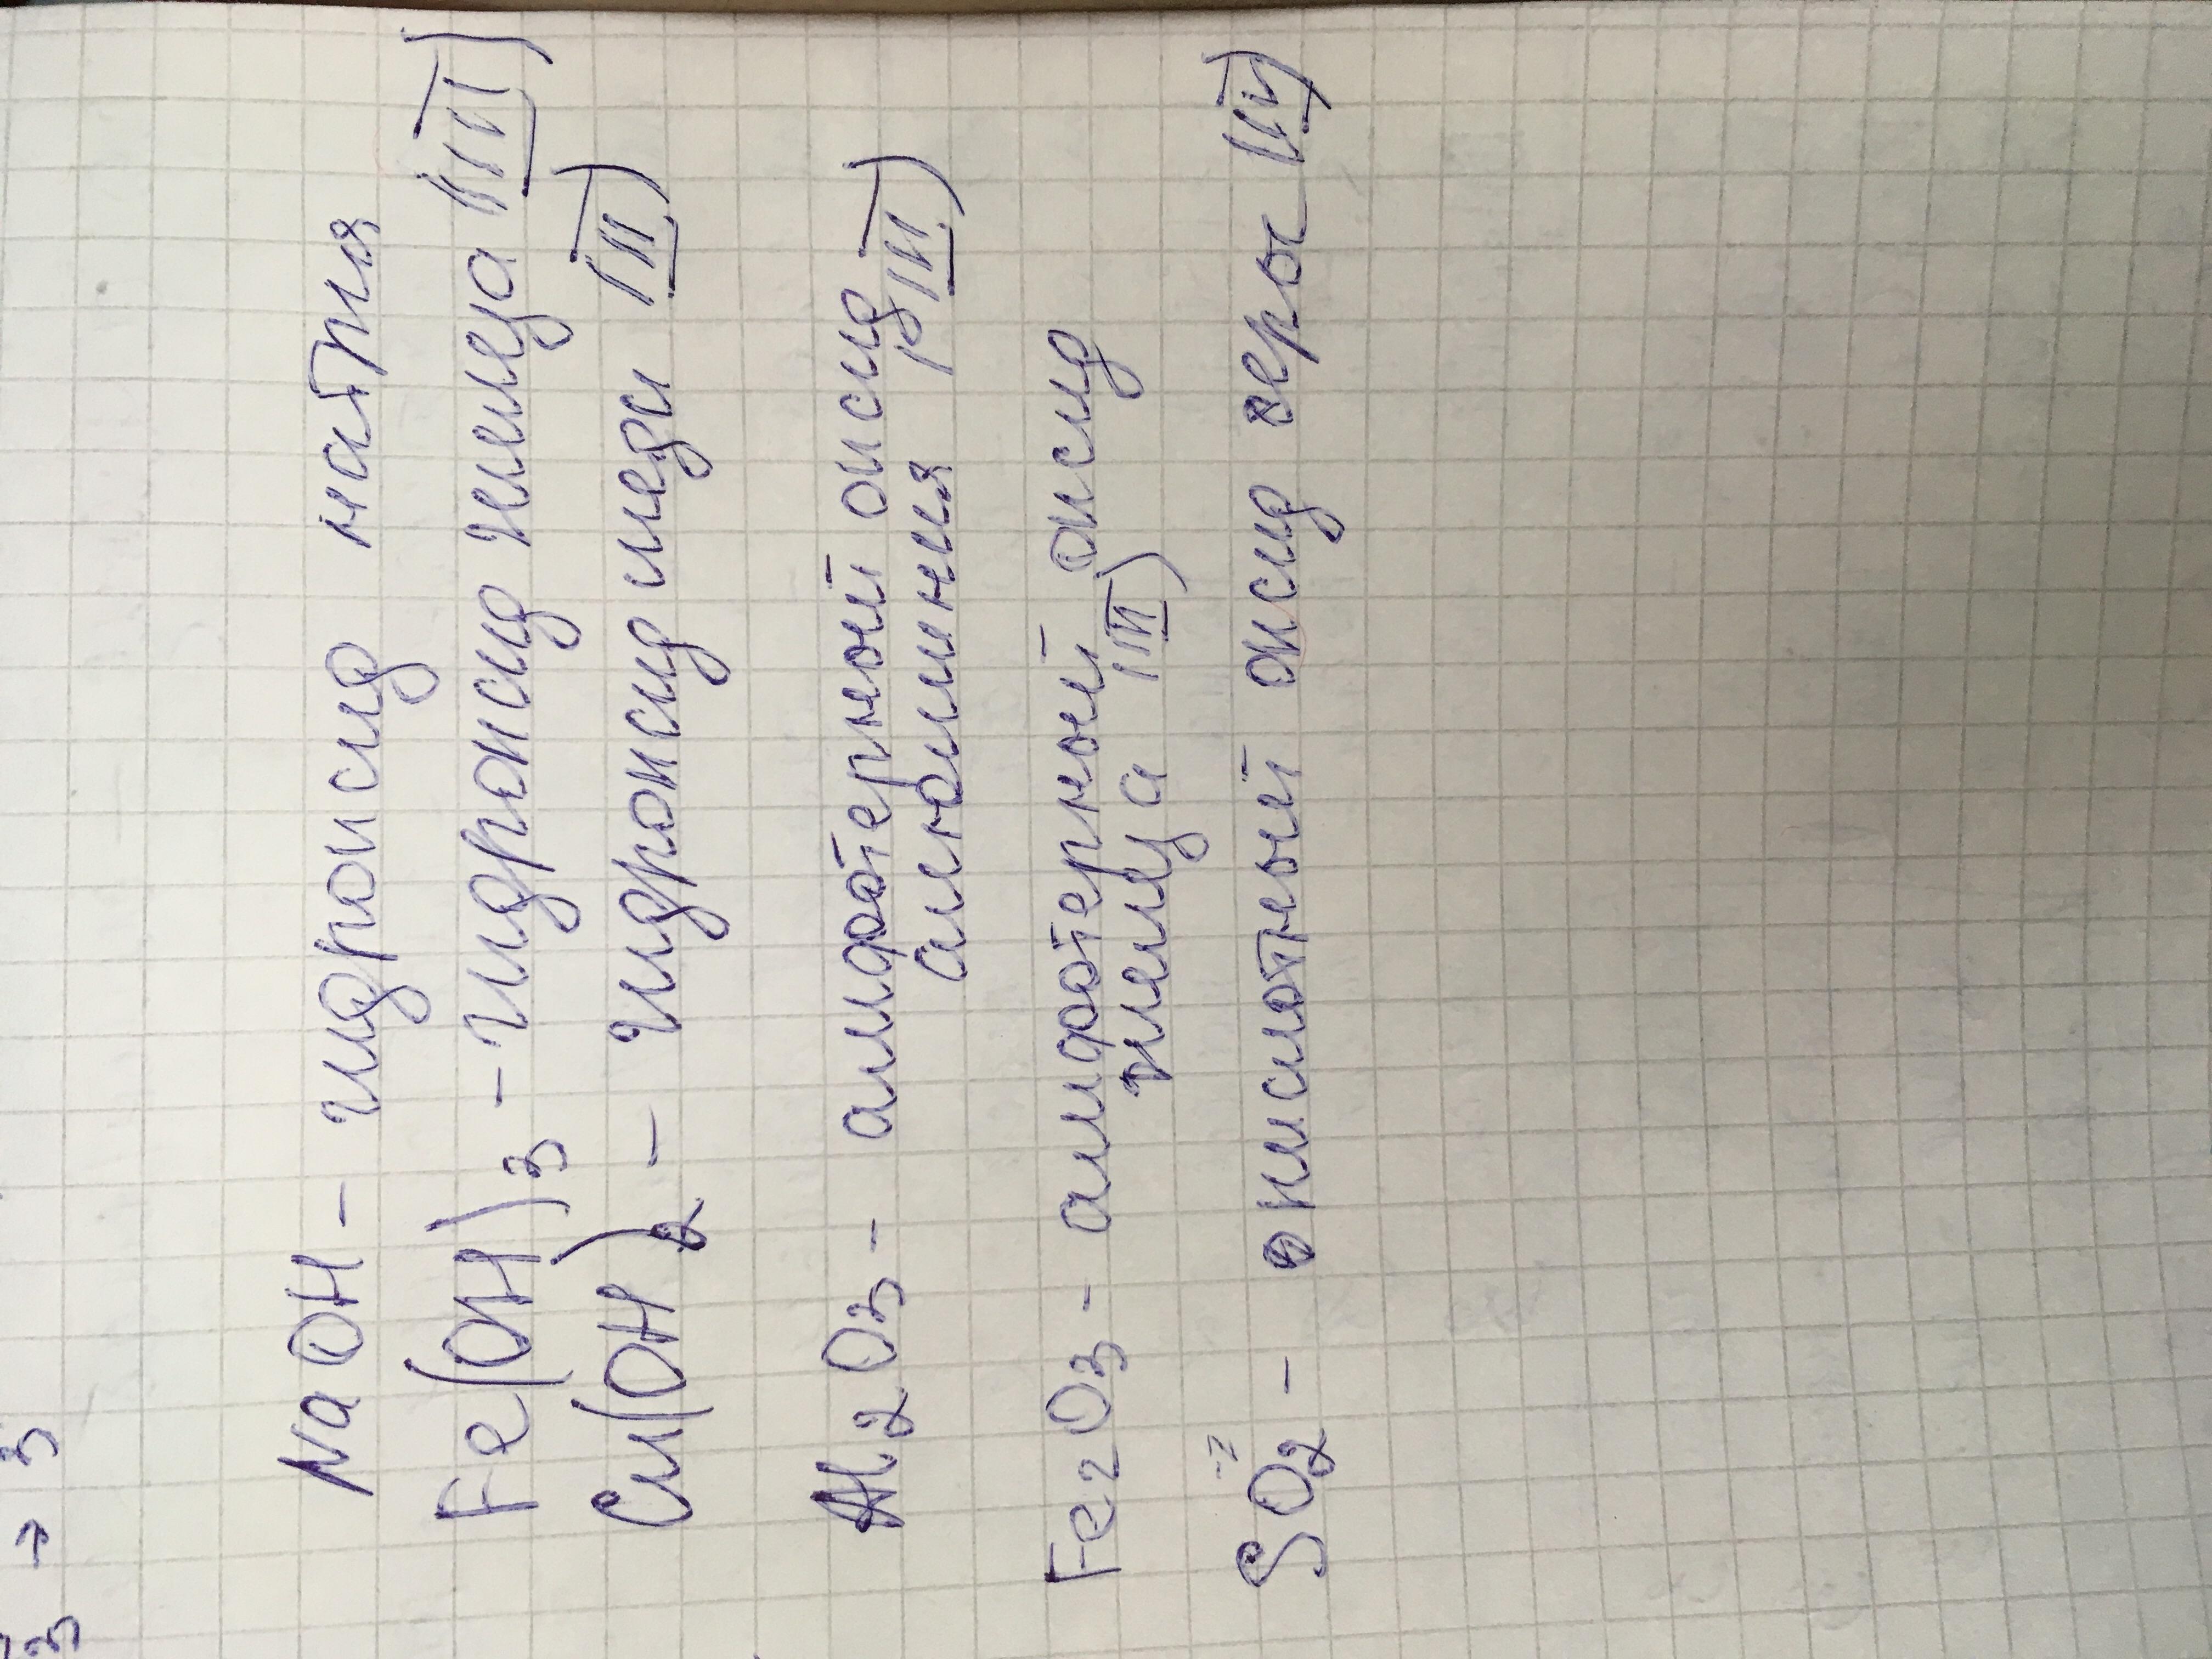 3 → 3
NaOH - гидроксид натия
Fe(OH)3 - гидроксид железа (III)
Cu(OH)2 - гидроксид меди (II)
Al2O3 - амфотерный оксид
алюминия (III)
Fe2O3 - амфотерный оксид
железа (III)
SO2 - кислотный оксид серы (IV)